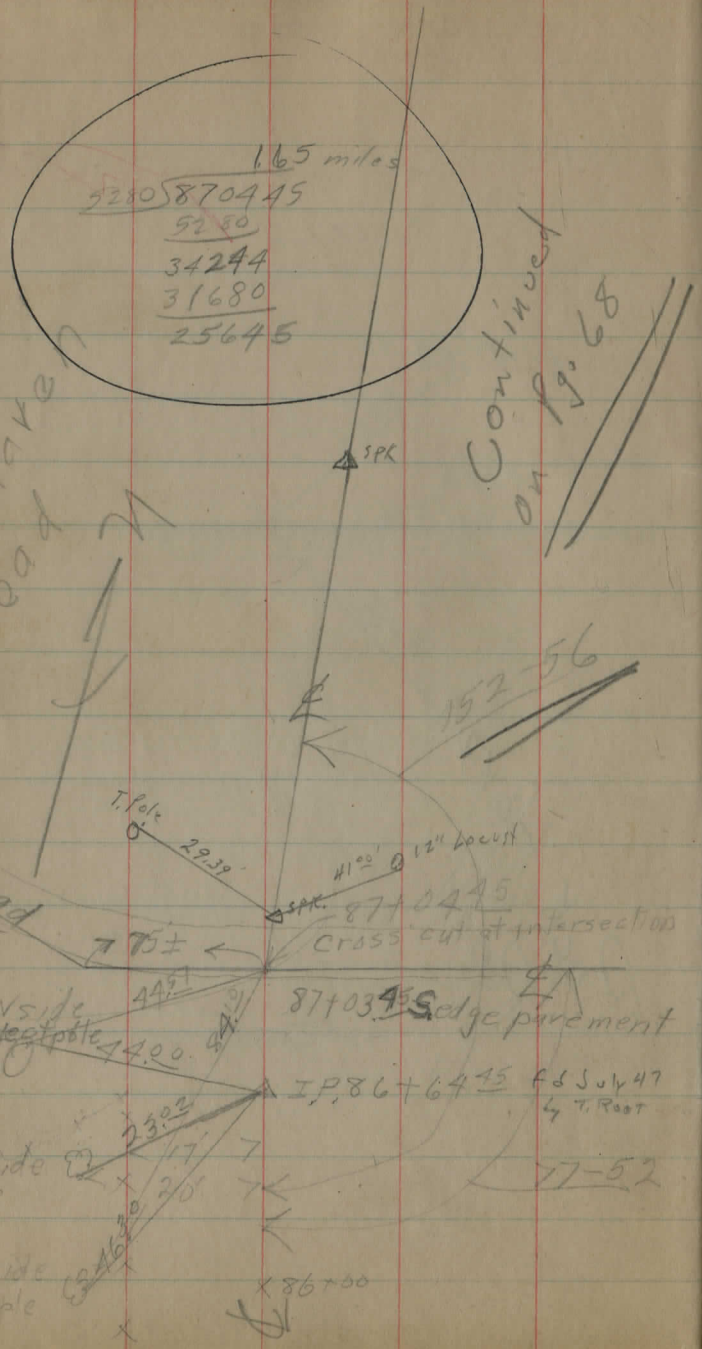 1.65 miles
5280)870445
5280
34244
31680
25645
Continued
on Pg. 68
SPK
℄
152-56
T.Pole
29.39'
41⁰⁰'
12" Locust
SPK.
87+04⁴⁵
Cross cut at intersection
75±
44.51
87+03.45 S. edge pavement
℄
44.00
I.P. 86+64⁴⁵ fd July 47
by T. Root
23.02
17'
20'
77-52
46.30
×86+00
℄